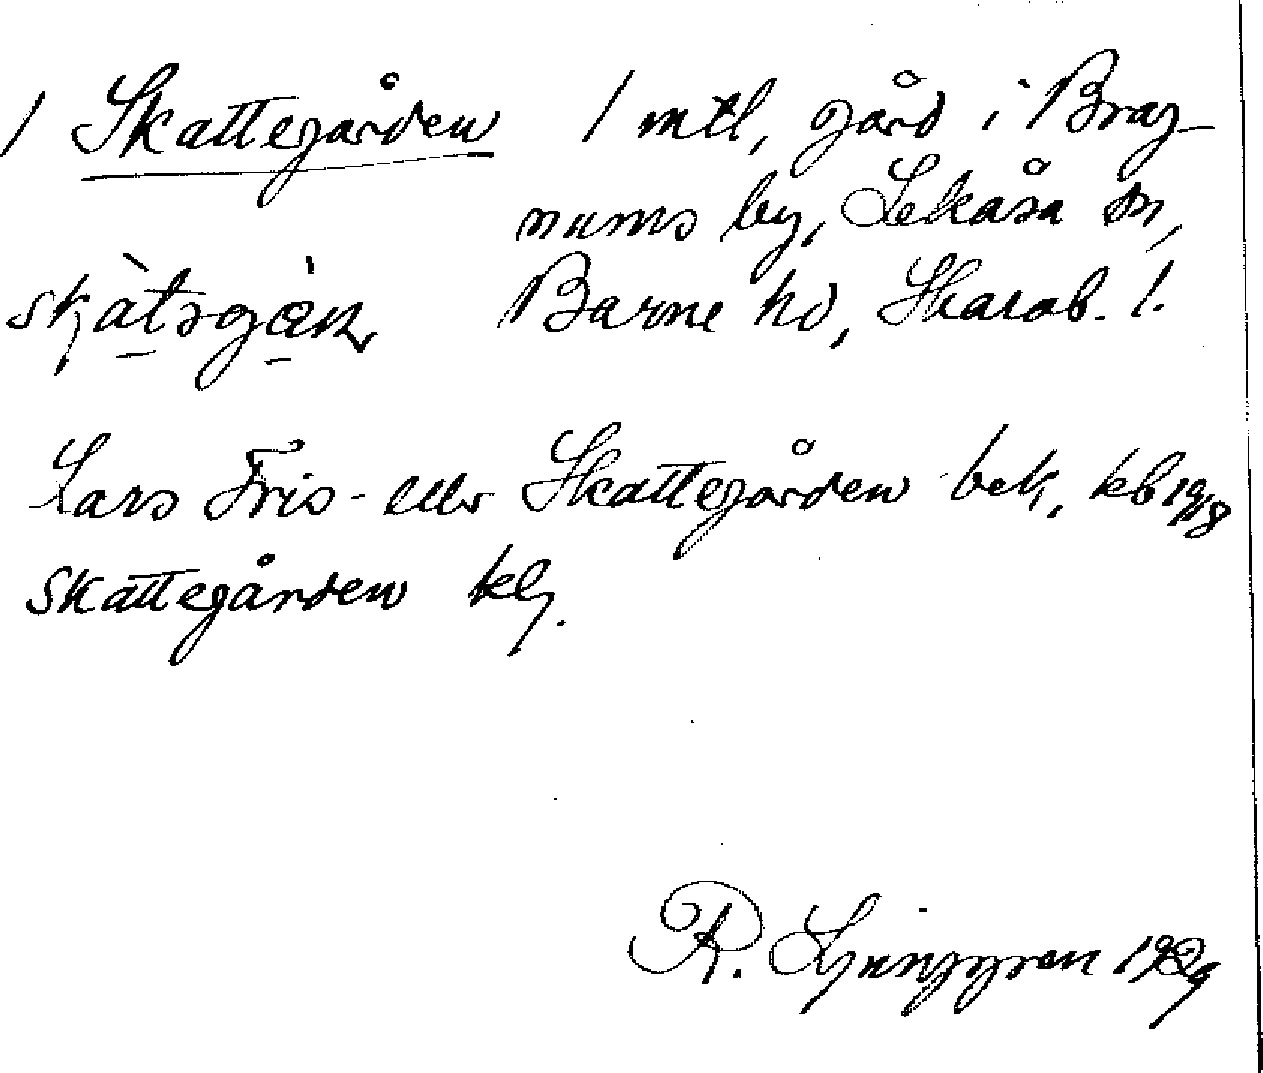 1 Skattegården 1 mtl, gård i Brag-
nums by, Lekåsa sn,
Barne hd, Skarab. l.
Lars Fris- eller Skattegården bek, kb 1918
Skattegården kg.
R. Ljunggren 1929